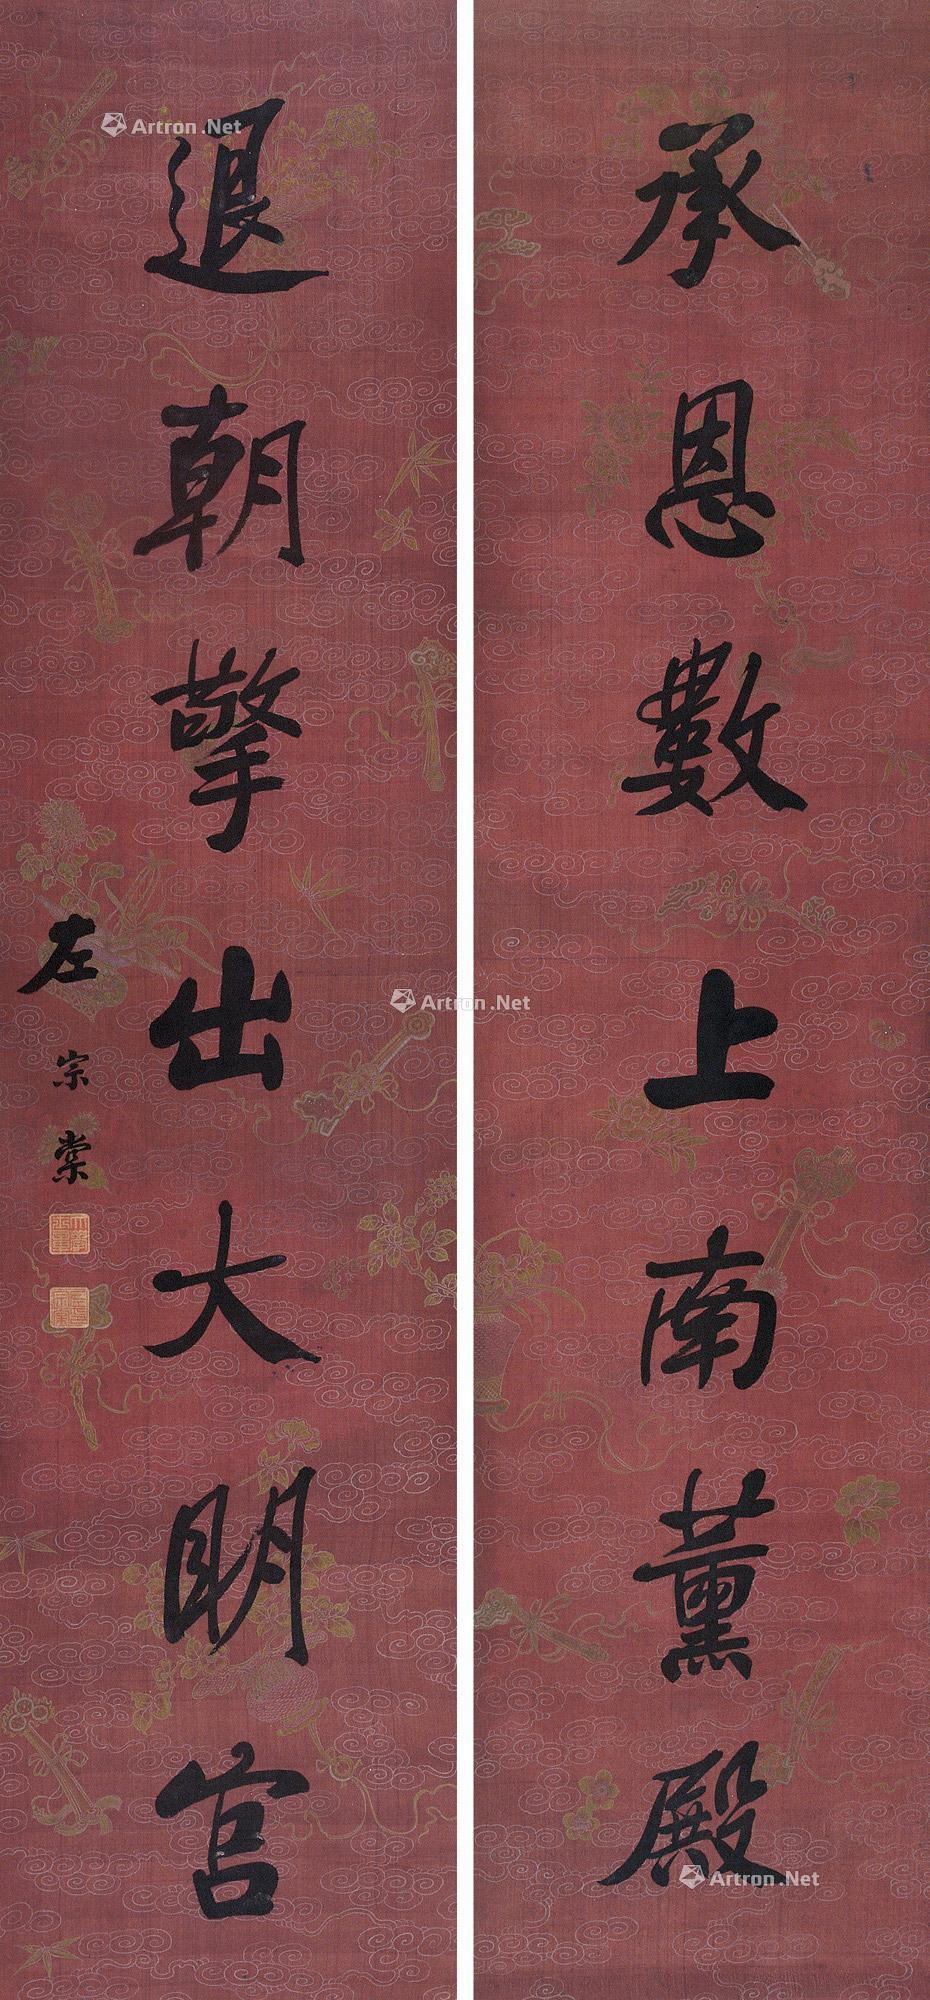 承恩數上南薰殿
退朝擎出大明宮
左宗棠
Artron.Net
Artron.Net
Artron.Net